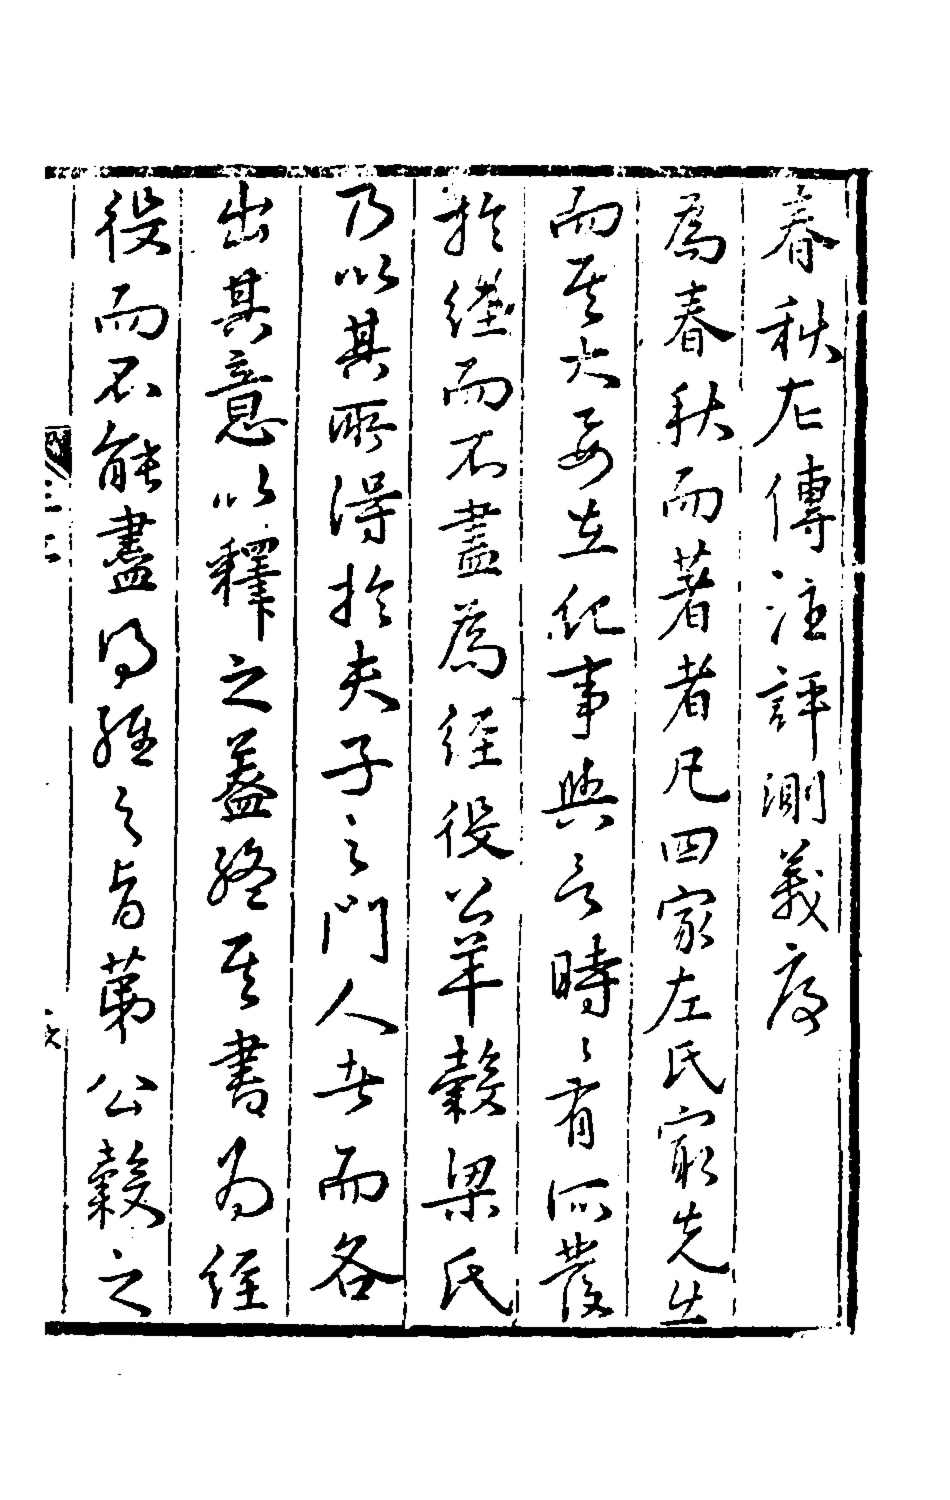 春秋左傳注評測義序
為春秋而著者凡四家左氏寂先出
而其大要在紀事與言時〻有所發
於經而不盡為經役公羊穀梁氏
乃以其所得於夫子之門人者而各
出其意以釋之蓋終其書為經
役而不能盡得經之旨第公穀之